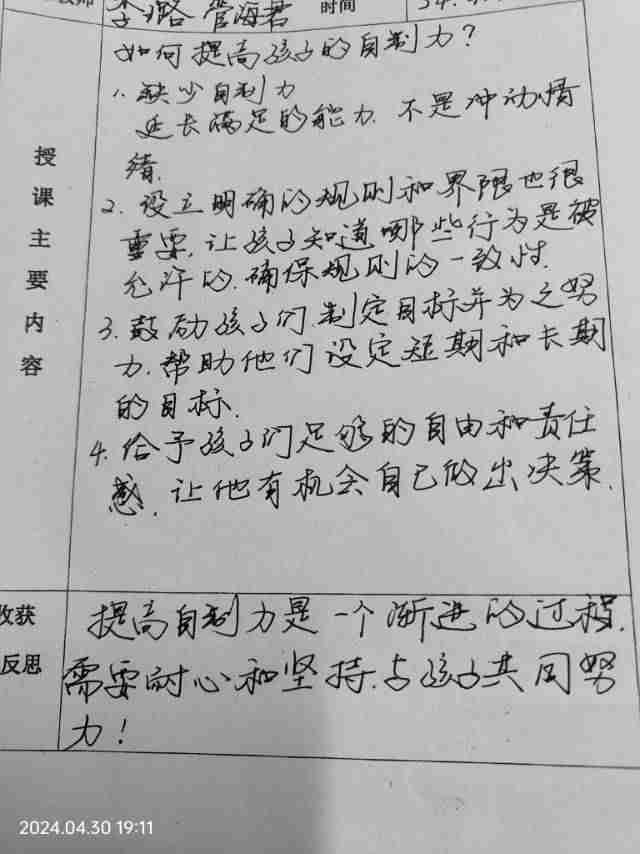 管海君 时间
如何提高孩子的自制力？
1. 缺少自制力
延长满足的能力. 不是冲动情
绪.
2. 设立明确的规则和界限也很
重要. 让孩子知道哪些行为是被
允许的. 确保规则的一致性.
3. 鼓励孩子们制定目标并为之努
力. 帮助他们设定短期和长期
的目标.
4. 给予孩子们足够的自由和责任
感. 让他有机会自己做出决策.
授
课
主
要
内
容
收获
反思
提高自制力是一个渐进的过程.
需要耐心和坚持. 与孩子共同努
力！
2024.04.30 19:11